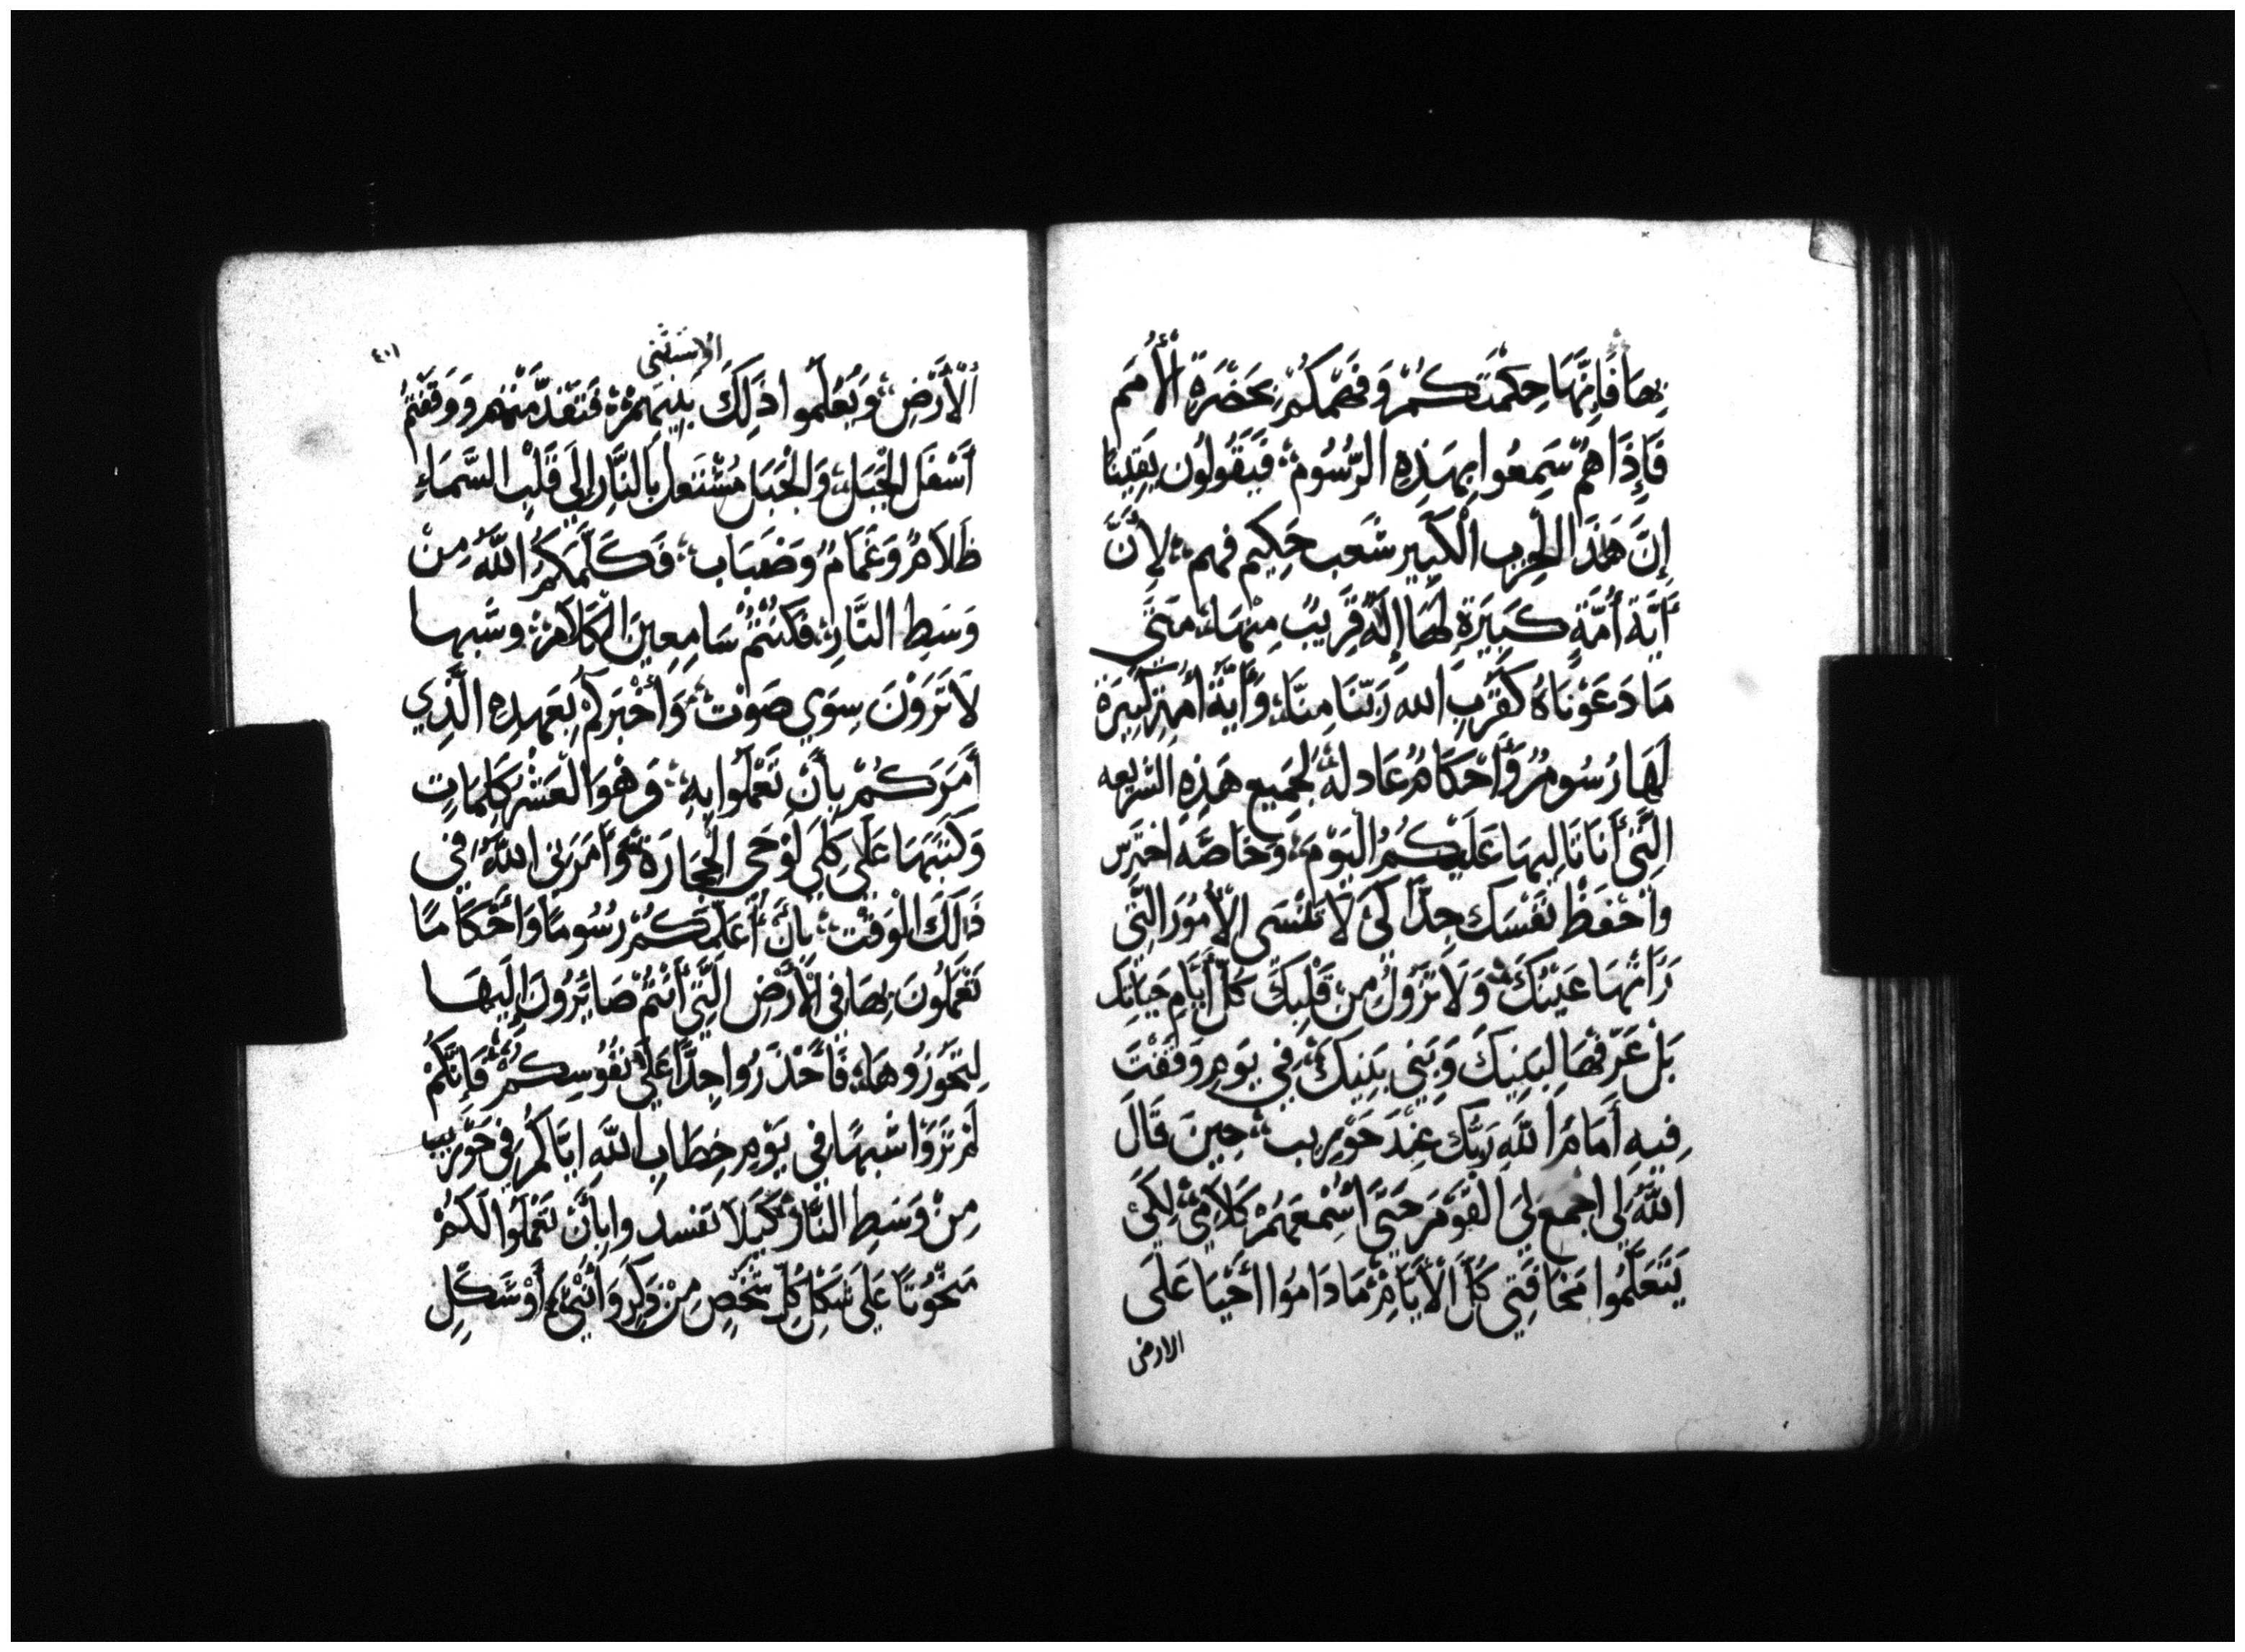 بِهَا فَإِنَّهَا حِكْمَتَكُمْ وَفَهْمَكُمْ بِحَضْرَةِ الْأُمَمِ
فَإِذَا هُمْ سَمِعُوا بِهَذِهِ الرُّسُومِ فَيَقُولُون يَقِينًا
إِنَّ هَذَا الحِزب الْكَبِير شَعب حَكِيم فهم لِأَنَّ
أَيَّةَ أُمَّةٍ كَبِيَرةٍ لَهَا إِلَهٌ قَرِيبٌ مِنْهَا مَتَى
مَا دَعَوْنَاهُ كَقُرْبِ الله رَبّنَا مِنَّا وَأَيَّةُ أُمَّةٍ كَبِيرَةٍ
لَهَا رُسُومٌ وَأَحْكَامٌ عَادلَةٌ لِجَمِيعِ هَذِهِ الشريعه
الَّتِي أَنَا تَالِيهَا عَلَيْكُمُ الْيَوْمَ وَخَاصَّه احترس
واحْفَظْ نَفْسَك جِدًّا كَيْ لَا تَنْسَى الْأُمُورَ الَّتِي
رَأَتْهَا عَيْنُكَ وَلَا تَزُولُ مِن قَلْبِكَ كُلَّ أَيَّامِ حَيَاتِكَ
بَلْ عَرِّفْهَا لِبَنِيكَ وَبَنِي بَنِيكَ فِي يَومِ وَقَفْتَ
فِيهِ أَمَامَ اللَّهِ رَبّك عِنْدَ حَوْرِيب حِينَ قَالَ
اللَّهُ لِي اجْمَع لِيَ الْقَوْمَ حَتَّى أُسْمِعَهُمْ كَلَامِي لِكَيْ
يَتَعَلَّمُوا مَخَافَتِي كُلَّ الْأَيَّامِ مَا دَامُوا أحْيَا عَلَى
الارض
الاستثنى
٤٠١
الْأَرْضِ وَيُعَلِّموا ذَلِكَ بَنِيهِمْ فَتَقَدَّمْتُم وَوَقَفْتُمْ
أَسْفَلَ الْجَبَل وَالْجَبَل مُشْتَعل بِالنَّارِ إِلَى قَلْبِ السَّمَاءِ
ظَلَامٌ وَغَمَامٌ وَضَبَاب فَكَلَّمَكُمُ اللَّهُ مِنْ
وَسَطِ النَّارِ فَكُنْتُمْ سَامِعِينَ الْكَلَامَ وشبها
لَا تَرَوْنَ سِوَى صَوْت وَأَخْبَرَكُمْ بِعَهدِهِ الَّذِي
أَمَرَكُمْ بِأَنْ تَعْمَلُوا بِهِ وَهْوَ الْعَشْر كَلِمَاتِ
وَكَتَبَهَا عَلَى كِلَي لَوْحَي الْحِجَارَة وَأَمَرَنِي اللَّهُ فِي
ذَلِكَ الْوَقْت بِأَنْ أُعَلِّمَكُمْ رُسُومًا وَأَحْكَامًا
تَعْمَلُونَ بِهَا فِي الْأَرْضِ الَّتِي أَنْتُمْ صَائِرُونَ إِلَيْهَا
لِتَحُوزُوهَا فَاحْذَرُوا جِدًّا عَلَى نُفُوسِكُمْ فَإِنَّكُمْ
لَمْ تَرَوْا شَبَهًا فِي يَوْمِ خِطَابِ اللَّهِ ايَّاكُمْ فِي حَوْرِيب
مِنْ وَسَطِ النَّارِ كَيْلَا تفسدوا بِأَنْ تَعْمَلُوا لَكُمْ
مَنْحُوتًا عَلَى شَكْلِ كُلِّ شَخْصٍ مِنْ ذَكَرٍ وَأُنْثَى أَوْ شَكْلِ